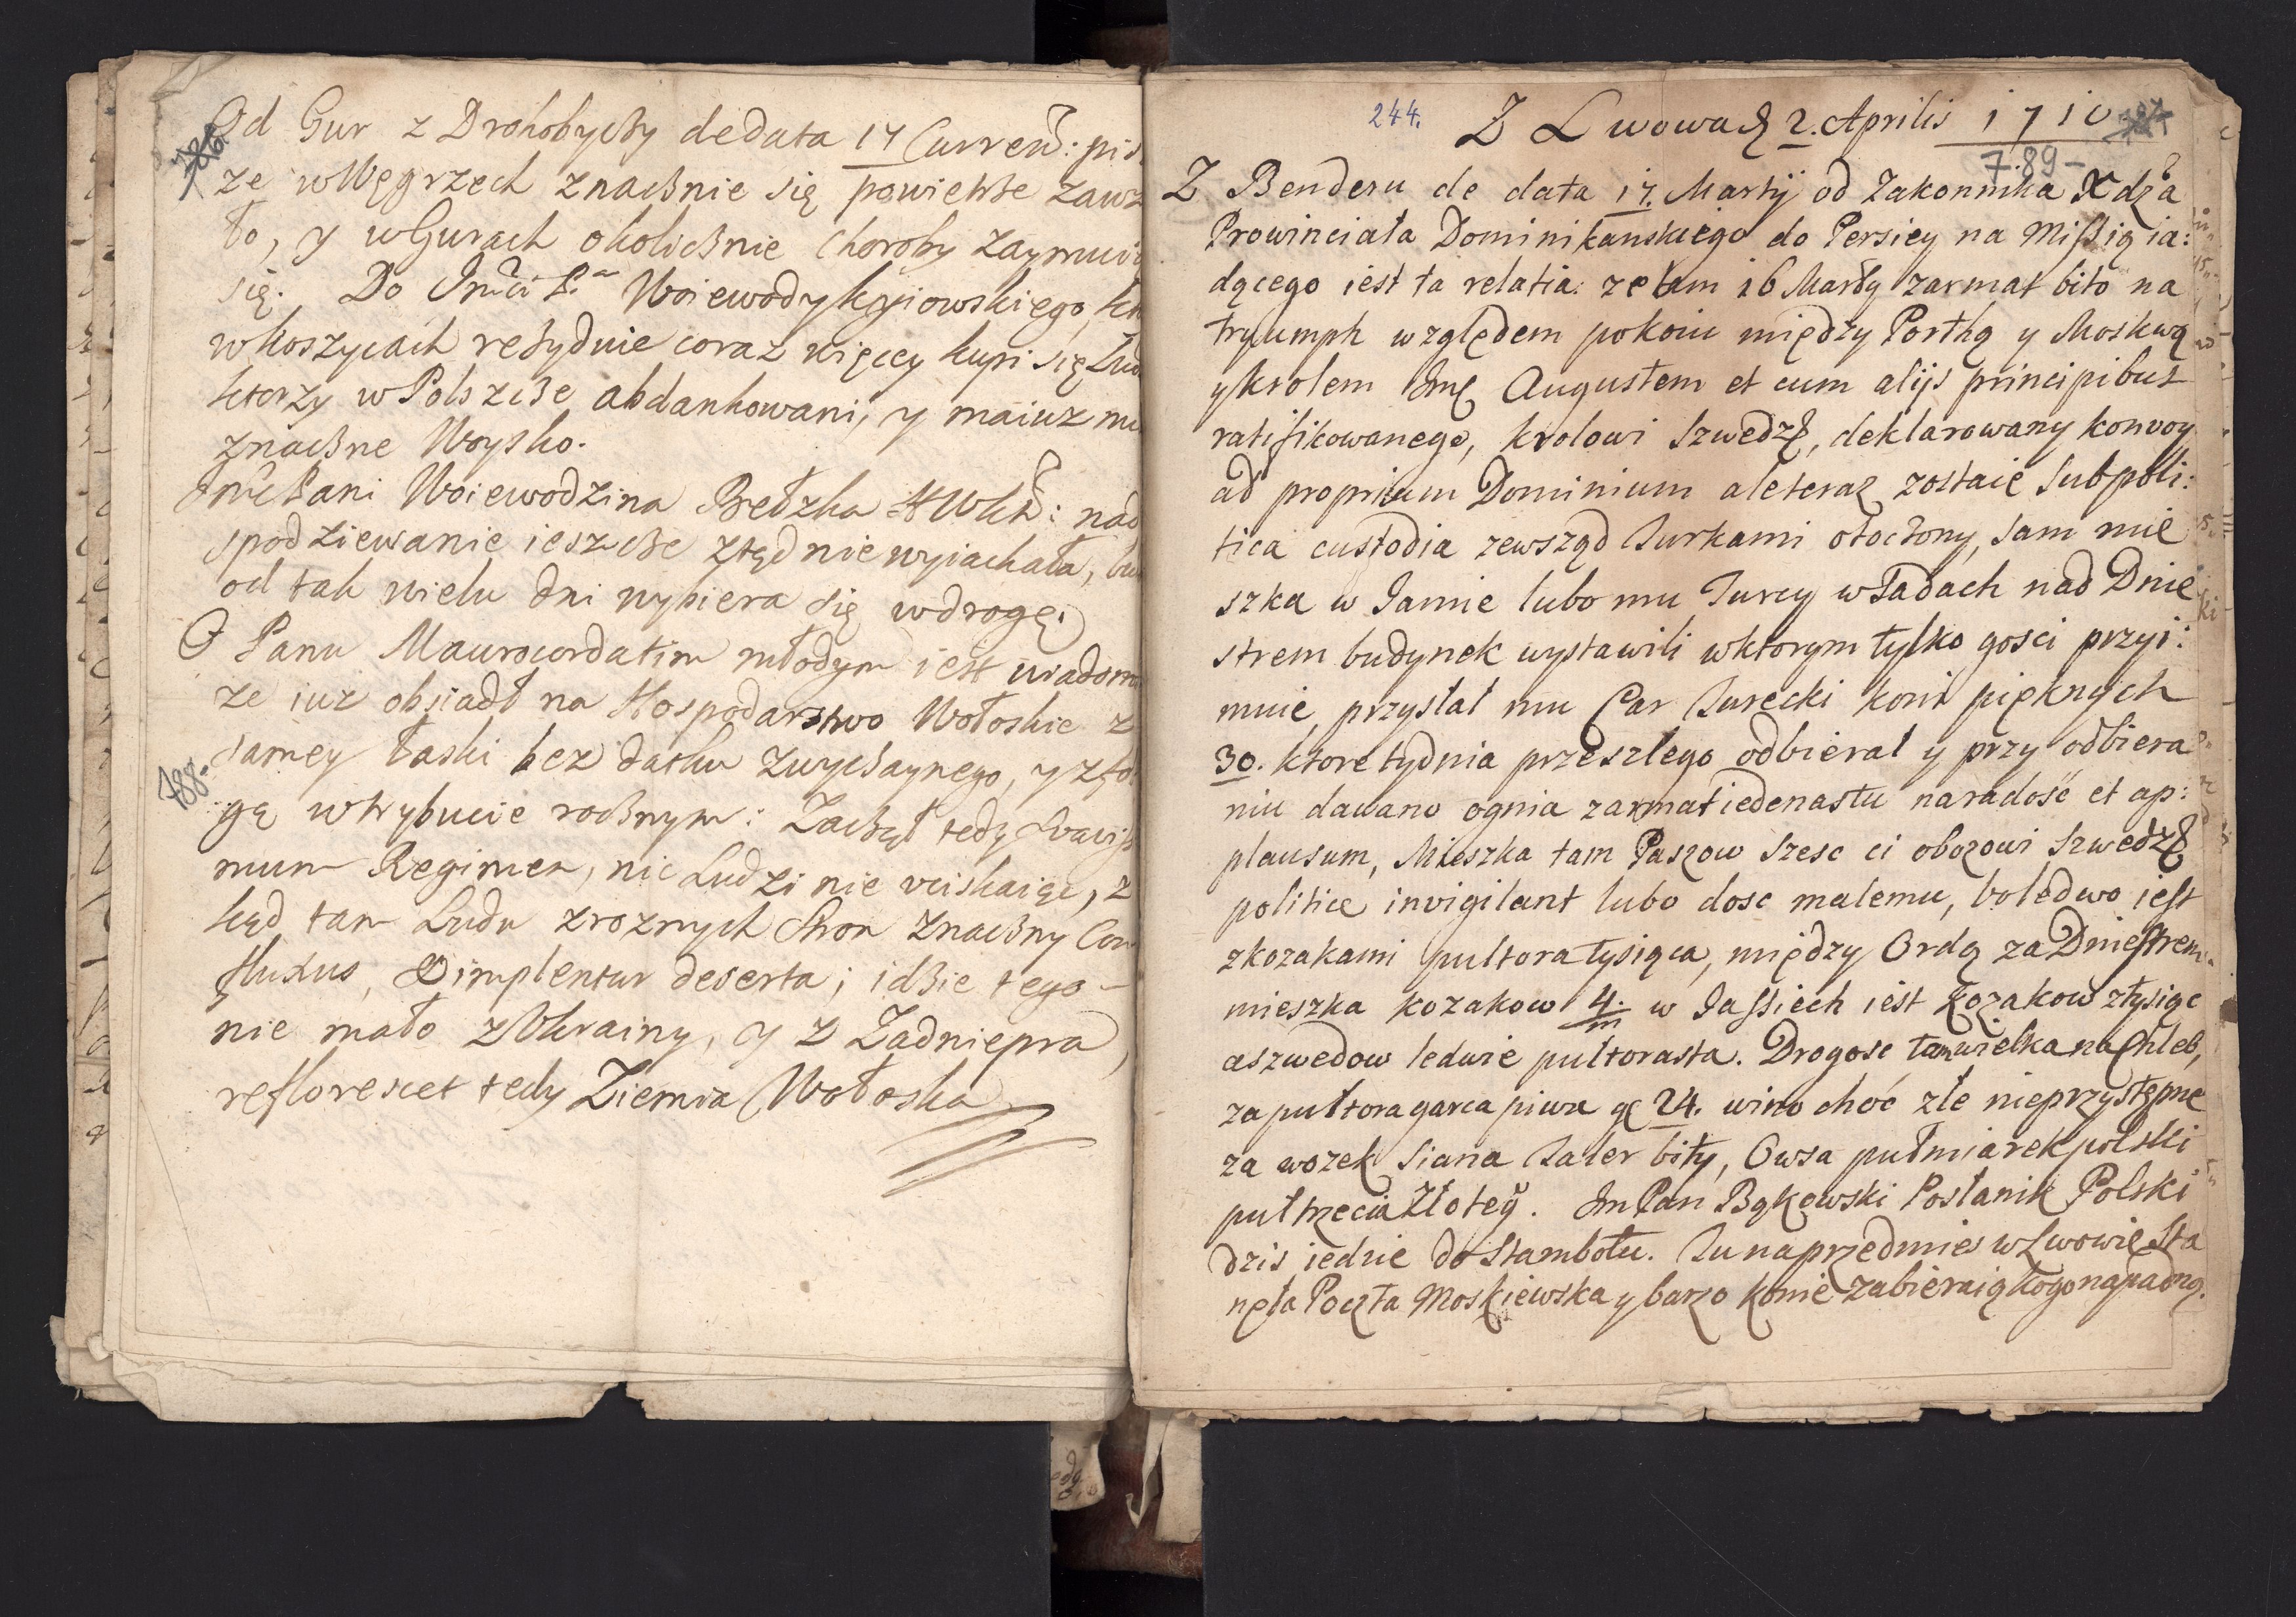 Od Gur z Drohobyczy de data 17 Curren: pis
ze w Węgrzech znacznie się powietrze zawz
ło, y w Gurach okolicznie choroby zaymui
się. Do Woiewody kyiowskiego
w koszycach residuie coraz więcey kupi się Lud
ktorzy w Polszcze abdankowani, y maiuz
znaczne Woysko.
Pani Woiewodzina Bełzka nad
spodziewanie ieszcze ztąd nie wyiachała,
od tak wielu dni wybiera się w drogę.
O Panu Maurocordatim młodym iest wiadom
ze iuz obsiadł na Hospodarstwo Wołoskie z
788.
samey łaski bez datku zwyczaynego, y z fo
gą w trybucie rocznym: Zaczął tedy Suavis
mum Regimen, nic Ludzi nie uciskaiąc, z
kąd tam Ludu z roznych stron znaczny Con
fluxus, implentur deserta; idzie tego
nie mało z Ukrainy, y z Zadniepra,
reflorescet tedy Ziemia Wołoska
244.
Z Lwowa d. 2. Aprilis 1710
789-
Z Benderu de data 17. Martij od Zakonnika Xdza
Prowinciała Dominikanskiego do Persiey na Missią ia:
dącego iest ta relatia: ze tam 16 Marty z armat bito na
tryumph względem pokoiu między Porthą y Moskwą
y krolem Jmę Augustem et cum alijs principibus
ratifikowanego, krolowi Szwedz, deklarowany konvoy
ad proprium Dominium ale teraz zostaie sub poli:
tica custodia zewsząd Turkami otoczony, sam mie
szka w Jamie lubo mu Turcy w Tadach nad Dnie
strem budynek wystawili w ktorym tylko gosci przyi:
muie, przysłał mu Car Turecki koni pięknych
30. ktore tydnia przeszlego odbierał y przy odbiera
niu dawano ognia z armat iedenastu na radość et ap:
plausum, Mieszka tam Paszow szesc ci obozowi Szwedz
politice invigilant lubo dosc malemu, bo ledwo iest
z kozakami pultora tysiąca, między Ordą za Dniestrem
mieszka kozakow 4/m w Jassiech iest kozakow z tysiąc
a szwedow ledwie pultorasta. Drogosc tam wielka na Chleb,
za pultora garca piwa g 24. wino choć złe nieprzystępne
za wozek Siana Taler bity, Owsa pułmiarek polski
pul trzecia Złotey. Jm Pan Bąkowski Posłanik Polski
dzis iedzie do Stambołu. Tu na przedmies w Lwowie Sta
nęła Poczta Moskiewska y barzo konie zabieraią kogo napadną.